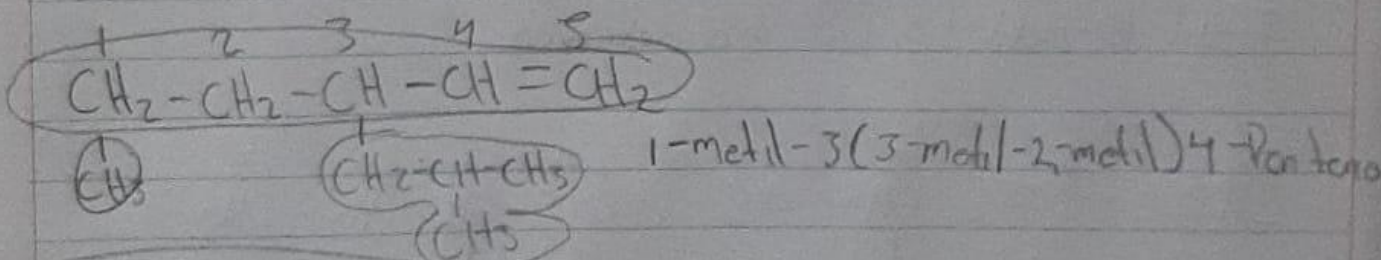 1 2 3 4 5
CH₂-CH₂-CH-CH=CH₂
CH₃ CH₂-CH-CH₃ 1-metil-3(3-metil-2,-metil)4-Penteno
CH₃